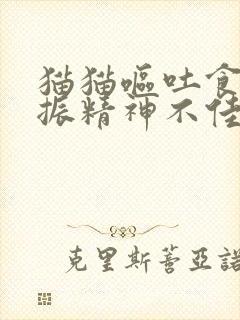 猫猫嘔吐食
振精神不佳
克里斯蒂亞諾